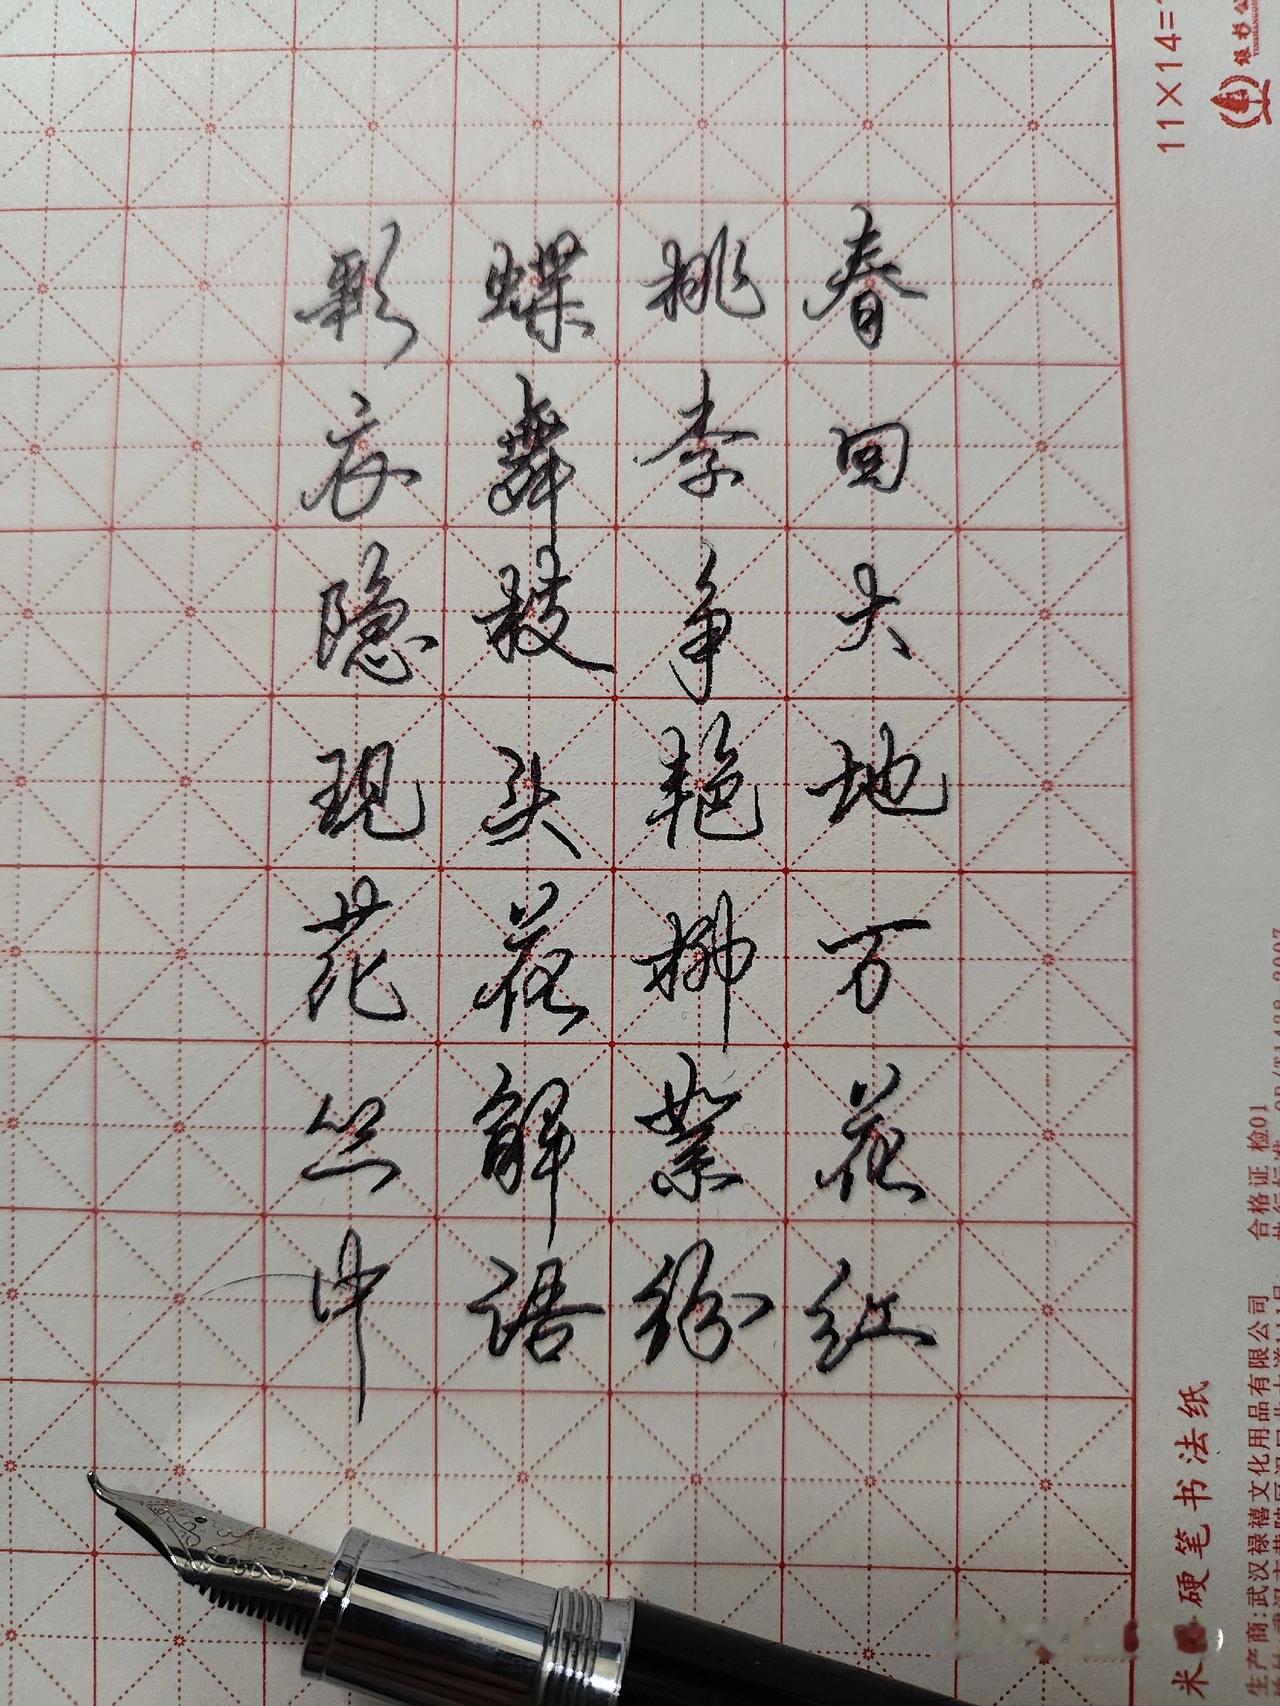 春回大地万花红
桃李争艳柳絮纷
蝶舞枝头花解语
彩衣隐现花丛中
11×14=
米 硬笔书法纸
生产商:武汉禄禧文化用品有限公司
合格证 检01